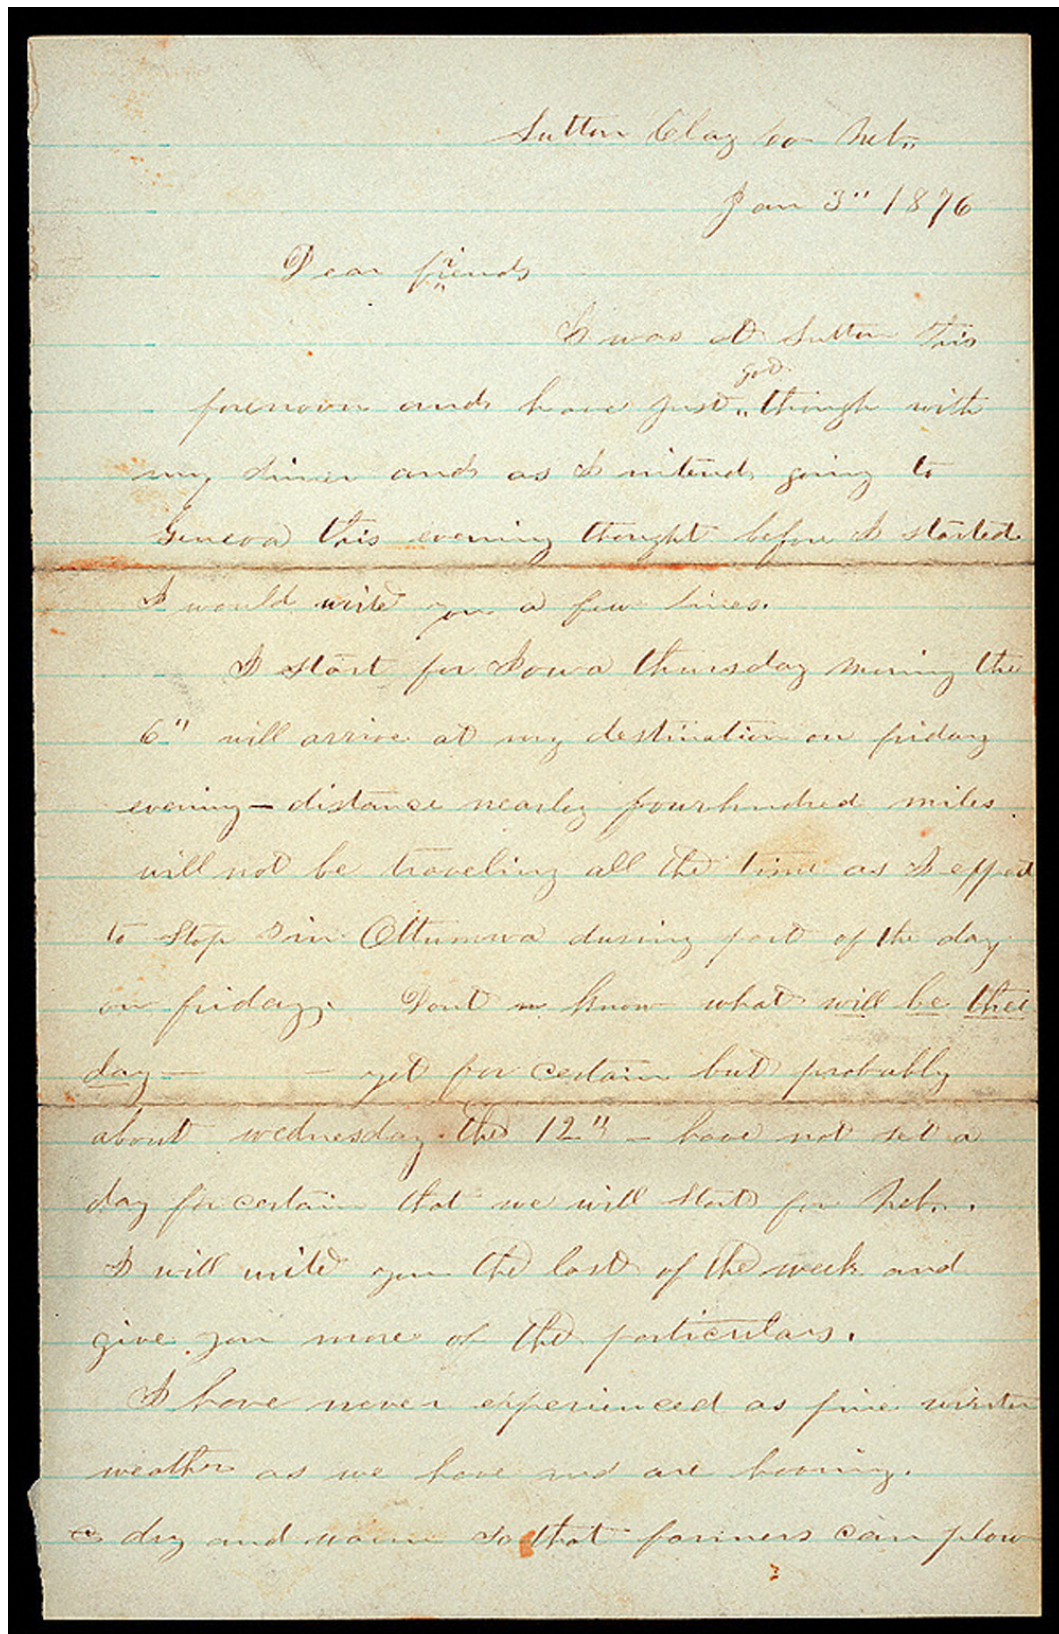 Sutton Clay Co Neb,,
Jan 3" 1876
Dear friends
I was at Sutton this
got
forenoon and have just,, though with
my diner and as I intend going to
Geneva this evening thought before I started
I would write you a few lines.
I start for Iowa thursday morning the
6" will arrive at my destination on friday
evening — distance nearly fourhundred miles
will not be traveling all the time as I expect
to Stop in Ottumwa during part of the day
on friday. Dont know what will be the
day — — yet for certain but probably
about wednesday the 12" — have not set a
day for certain that we will start for Neb,,.
I will write you the last of the week and
give you more of the particulars.
I have never experienced as fine winter
weather as we have and are having.
dry and warm so that farmers can plow